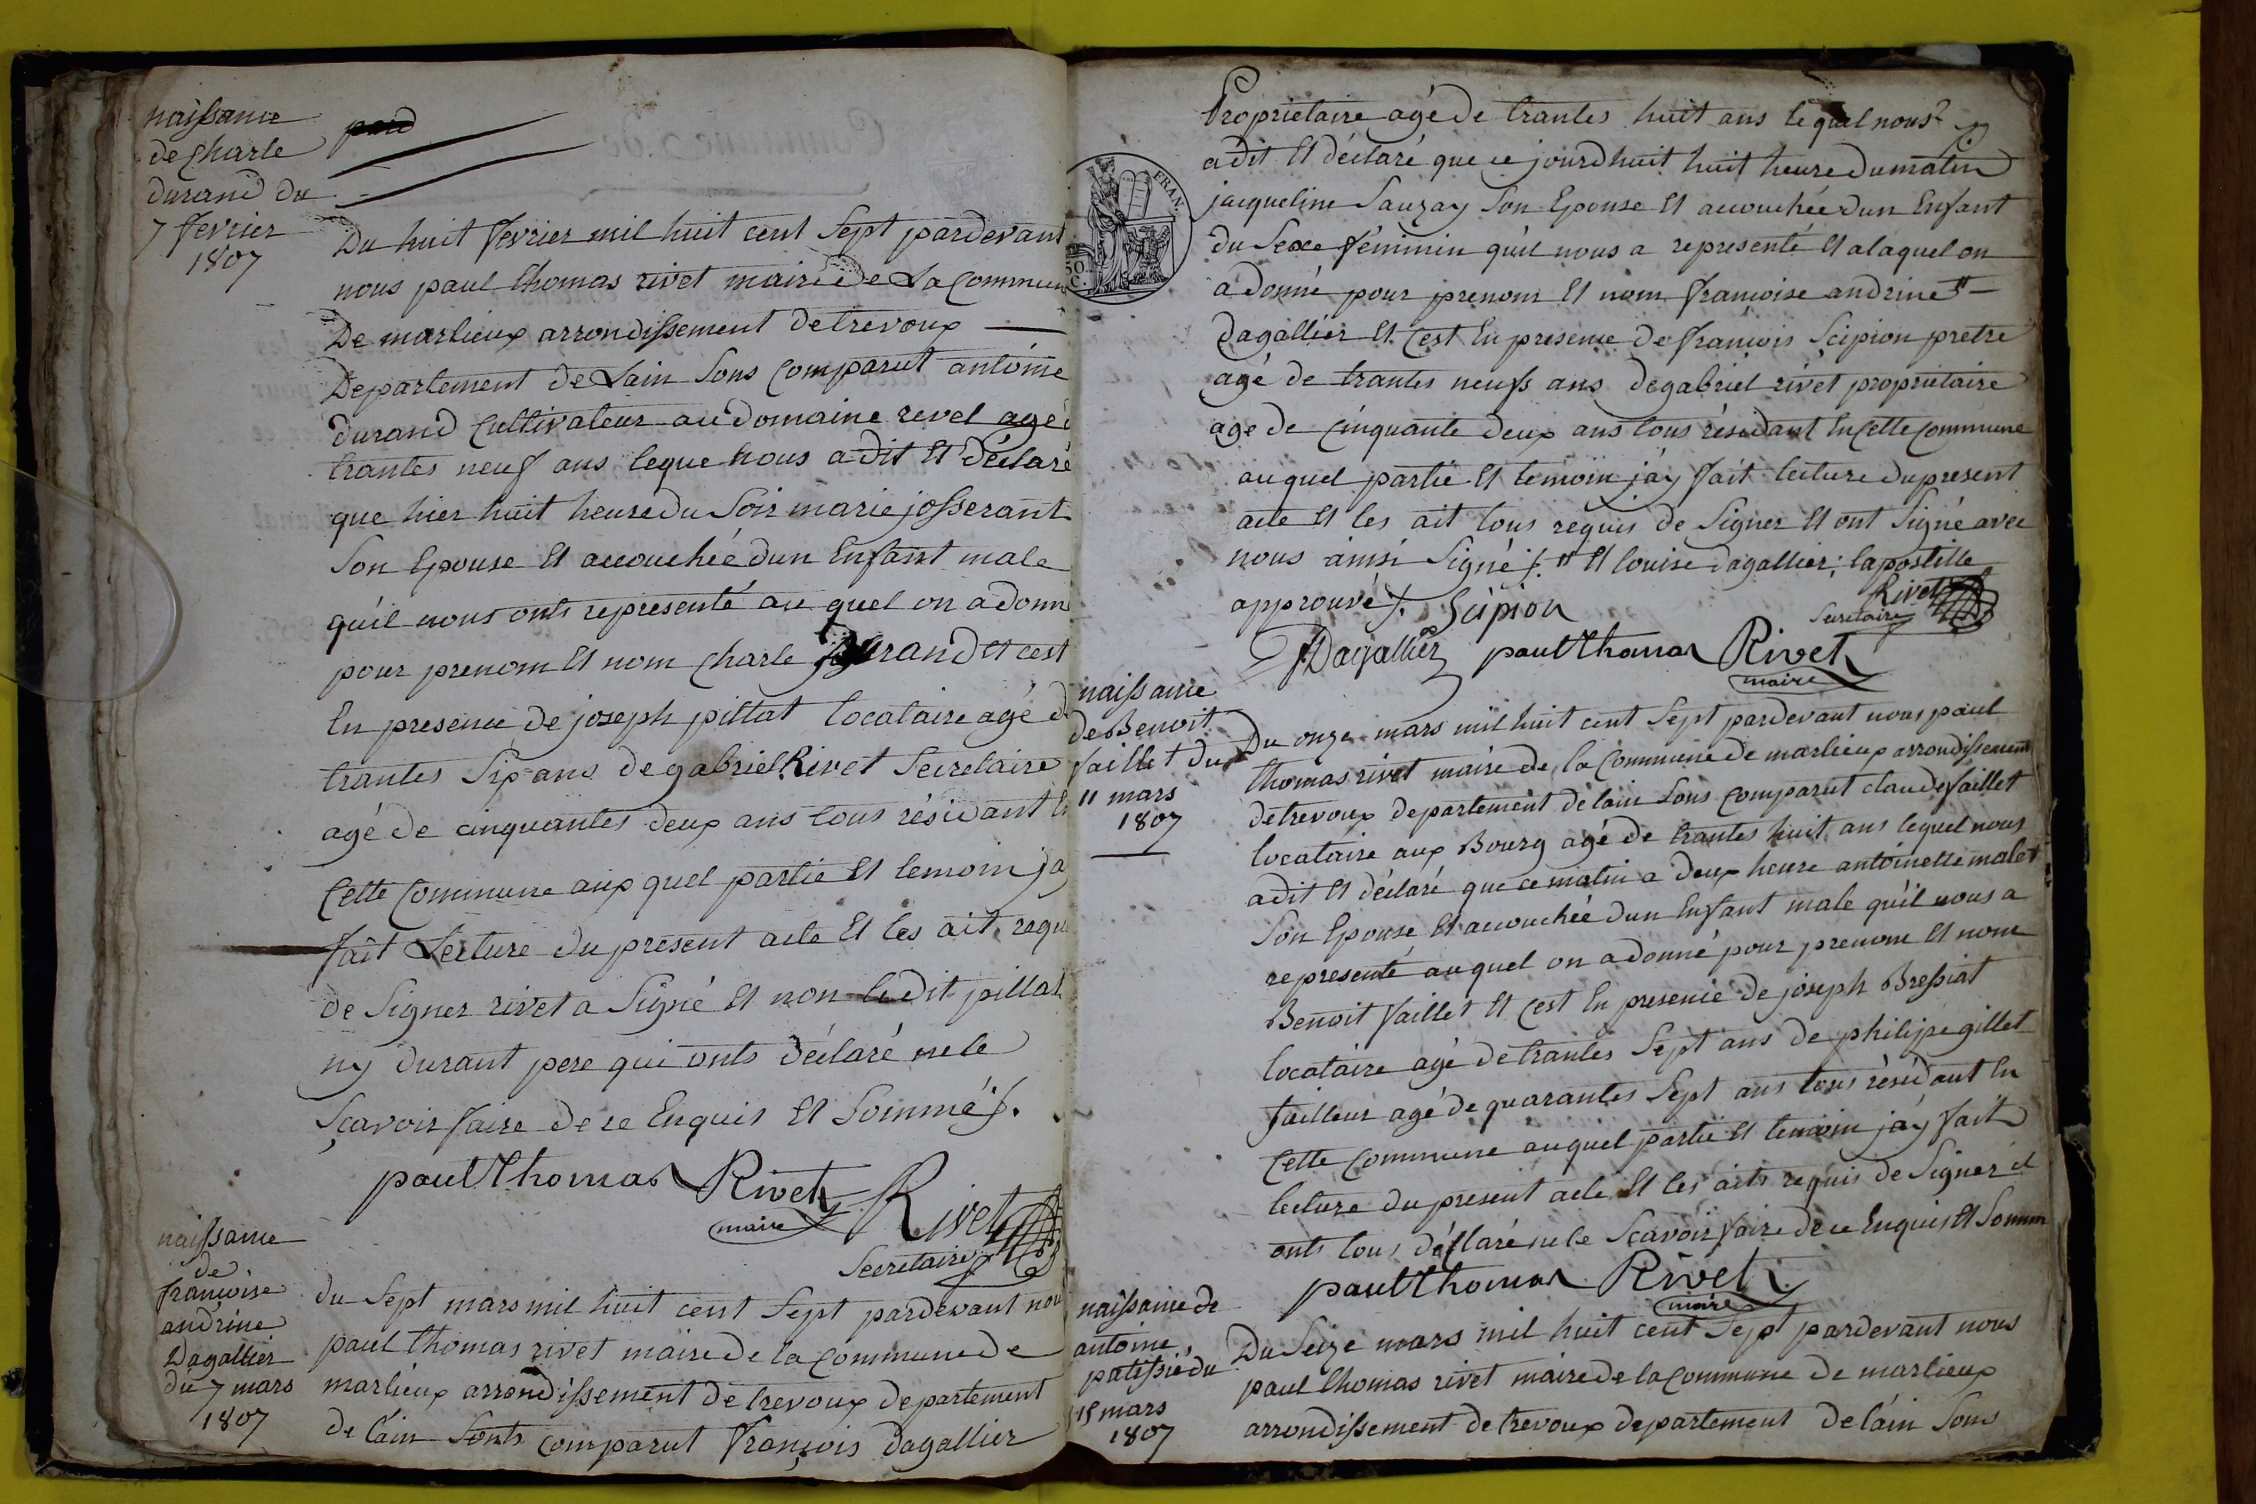 naissance
de charle
durand du
7 fevrier
1807
pard
Du huit fevrier mil huit cent Sept pardevant
nous paul thomas rivet maire de La Commune
De marlieux arrondissement de trevoux
Departement de Lain Sons Comparut antoine
durand Cultivateur au domaine revel agé d
trantes neuf ans leque nous a dit Et déclaré
que hier huit heure du Soir marie josserant
Son Epouse Et accouchée dun Enfant male
quil nous onts representé au quel on a donn
pour prenom Et nom charle Durand et cest
En presence de joseph pillat locataire agé d
trantes Six ans de gabriel Rivet Secretaire
agé de cinquantes deux ans tous résidant En
Cette Commune aux quel partie Et temoin jay
fait Lecture du present acte Et les ait requ
de Signer rivet a Signé Et non ledit pillat
ny durant pere qui onts déclaré ne le
Sçavoir faire de ce Enquis Et Sommé ./.
paul thomas Rivet
maire
Rivet
Secretaire
naissance
de
francoise
andrine
Dagallier
du 7 mars
1807
du Sept mars mil huit cent Sept pardevant nou
paul thomas rivet maire de la Commune de
marlieux arrondissement de trevoux departement
de lain Sonts comparut François dagallier
FRAN.
50
C.
Propriétaire agé de trantes huit ans lequal nous
a dit Et déclaré que ce jourdhuit huit heure du matin
jacqueline Sauzay Son Epouse Et accouchée dun Enfant
du Sexe féminin quil nous a representé Et a laquel on
a donné pour prenom Et nom francoise andrine "
dagallier Et Cest En presence de françois Scipion pretre
agé de trantes neufs ans de gabriel rivet propriétaire
agé de Cinquante deux ans tous résidant En Cette Commune
au quel partie Et temoin jáy fait lecture du present
acte Et les ait tous requis de Signer Et ont Signé avec
nous ainsi Signé ./. " Et louise dagallier; lapostille
approuvé ./. Scipion
Rivet
Secretaire
f Dagallier paul thomas Rivet
maire
naissance
de Benoit
faillet du
11 mars
1807
Du onze mars mil huit cent Sept pardevant nous paul
thomas rivet maire de la Commune de marlieux arrondissement
de trevoux departement de lain Sons Comparut claude faillet
locataire aux Bourg agé de trantes huit ans lequel nous
a dit Et déclaré que ce matin a deux heure antoinette malet
Son Epouse Et accouchée dun Enfant male quil nous a
representé au quel on a donné pour prenom Et nom
Benoit faillet Et Cest En presence de joseph Bressiat
locataire agé de trantes Sept ans de philipe gillet
tailleur agé de quarantes Sept ans tous résidant En
Cette Commune au quel partie Et temoin jáy fait
lecture du present acte Et les aits requis de Signer il
onts tous déclaré ne le Scavoir faire de ce Enquis Et Somm
paul thomas Rivet
maire
naissance de
antoine
patissie du
15 mars
1807
Du Seize mars mil huit cent Sept pardevant nous
paul thomas rivet maire de la Commune de marlieux
arrondissement de trevoux departement de lain Sons